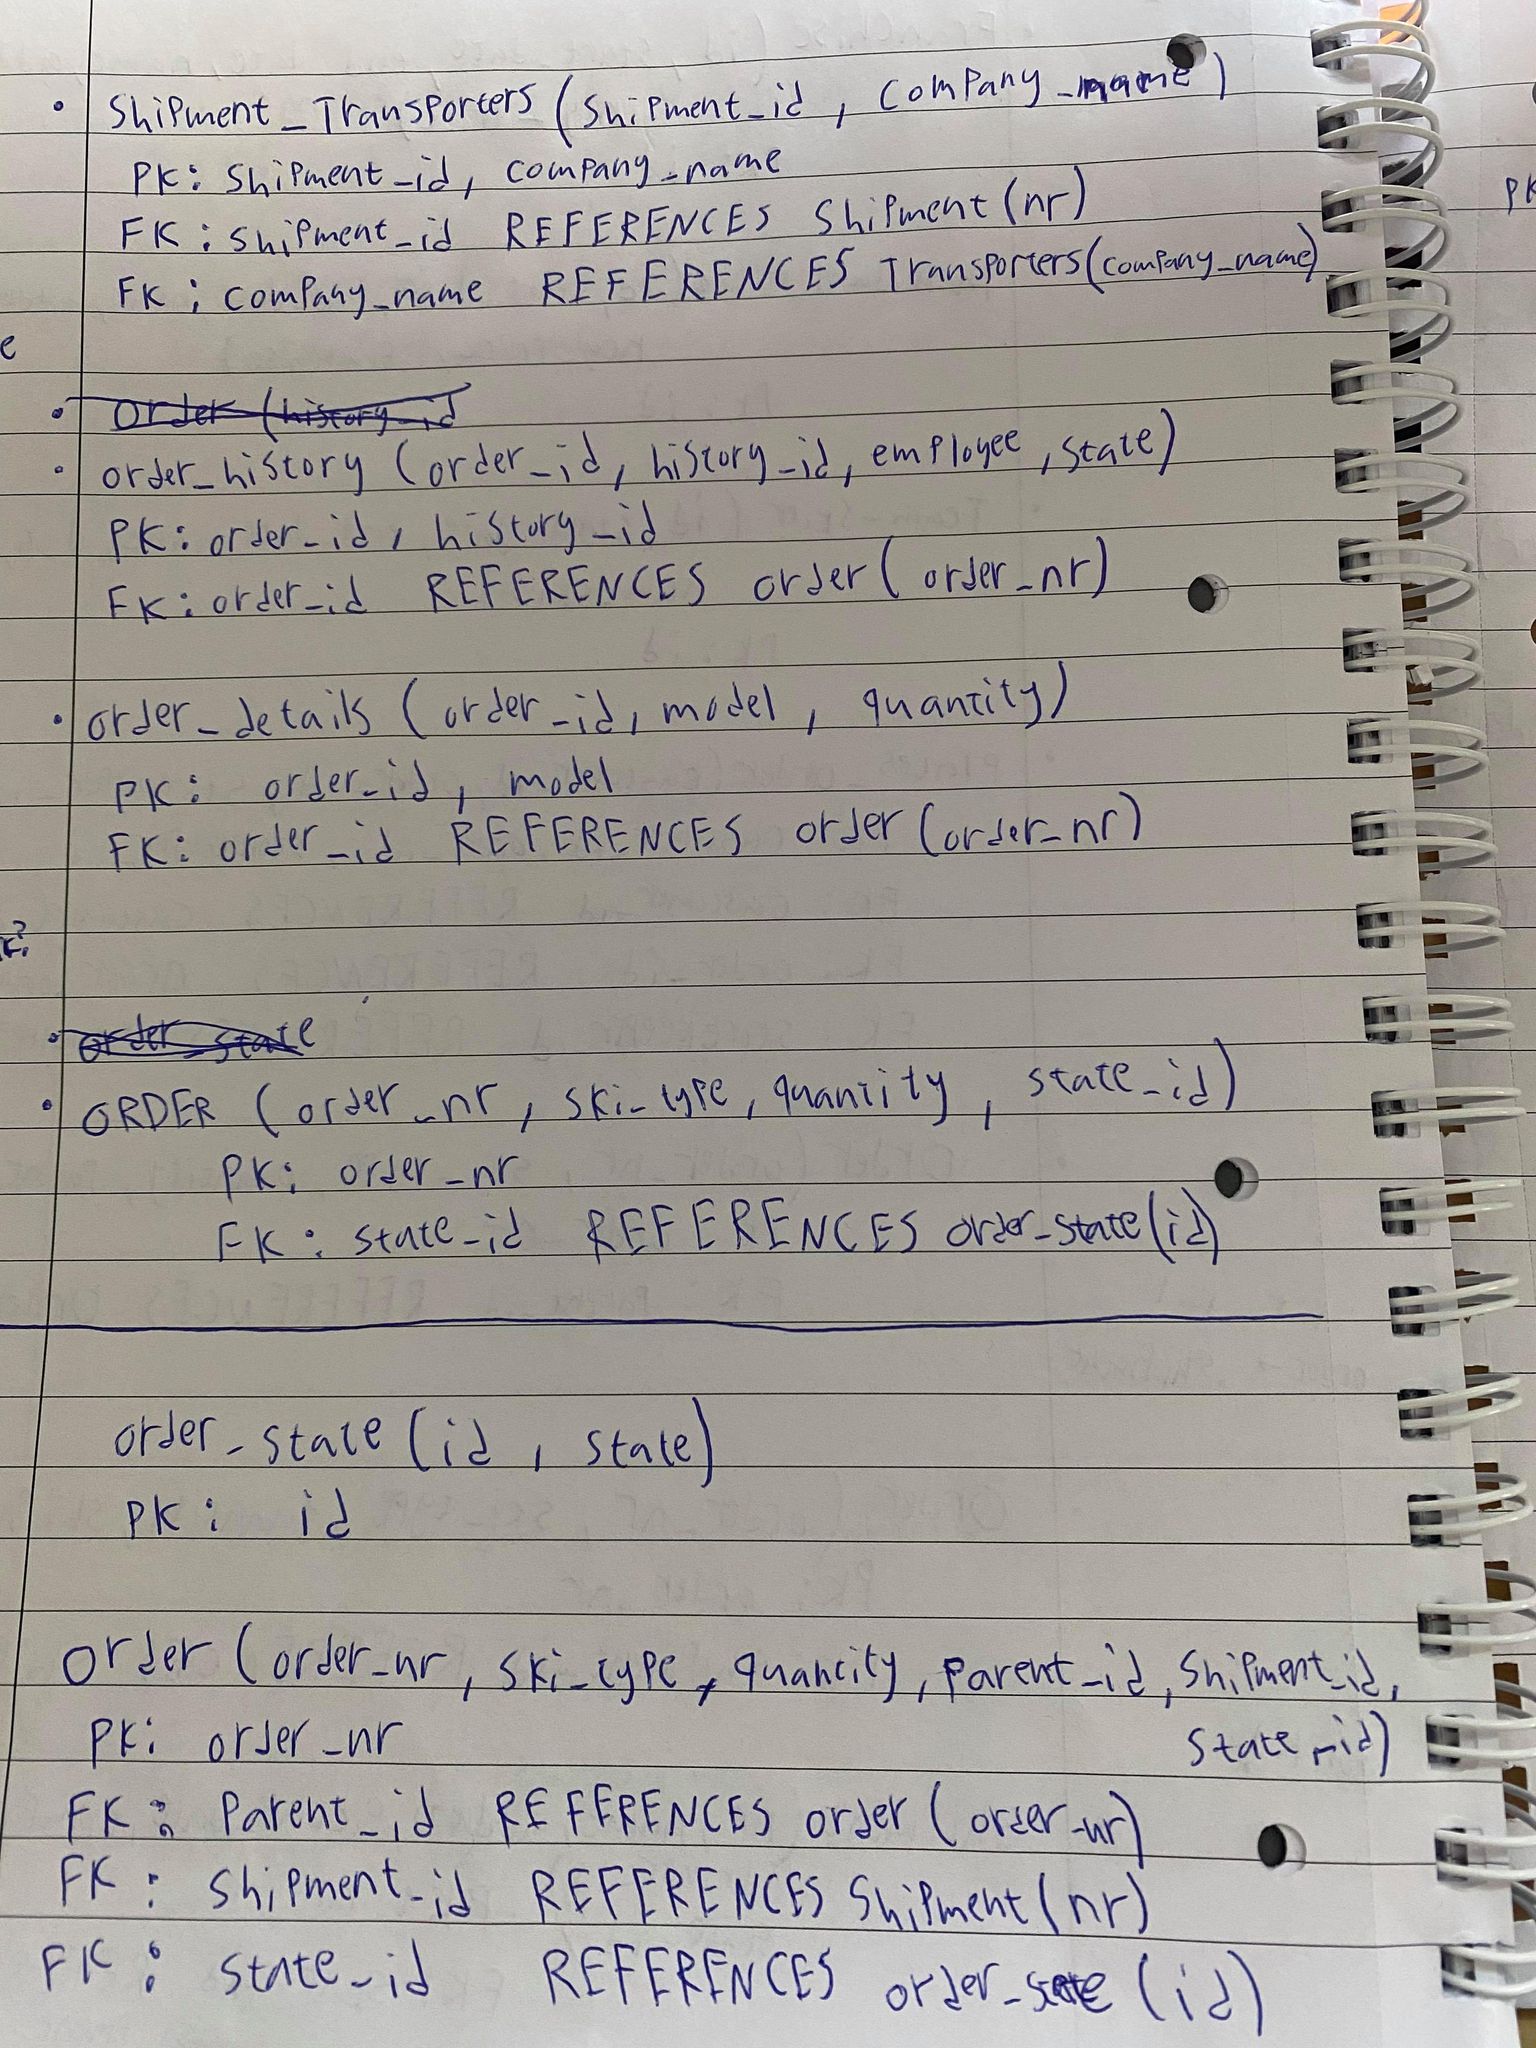 • Shipment_Transporters (shipment_id, company_name)
PK: shipment_id, company_name
FK: shipment_id REFERENCES Shipment(nr)
FK: company_name REFERENCES Transporters(company_name)
• order (history_id
• order_history (order_id, history_id, employee, state)
PK: order_id, history_id
FK: order_id REFERENCES order(order_nr)
• order_details (order_id, model, quantity)
PK: order_id, model
FK: order_id REFERENCES order(order_nr)
• order_state
• ORDER (order_nr, ski_type, quantity, state_id)
PK: order_nr
FK: state_id REFERENCES order_state(id)
order_state (id, state)
PK: id
order (order_nr, ski_type, quantity, parent_id, shipment_id,
state_id)
PK: order_nr
FK: Parent_id REFERENCES order (order_nr)
FK: shipment_id REFERENCES Shipment(nr)
FK: state_id REFERENCES order_state (id)
PK